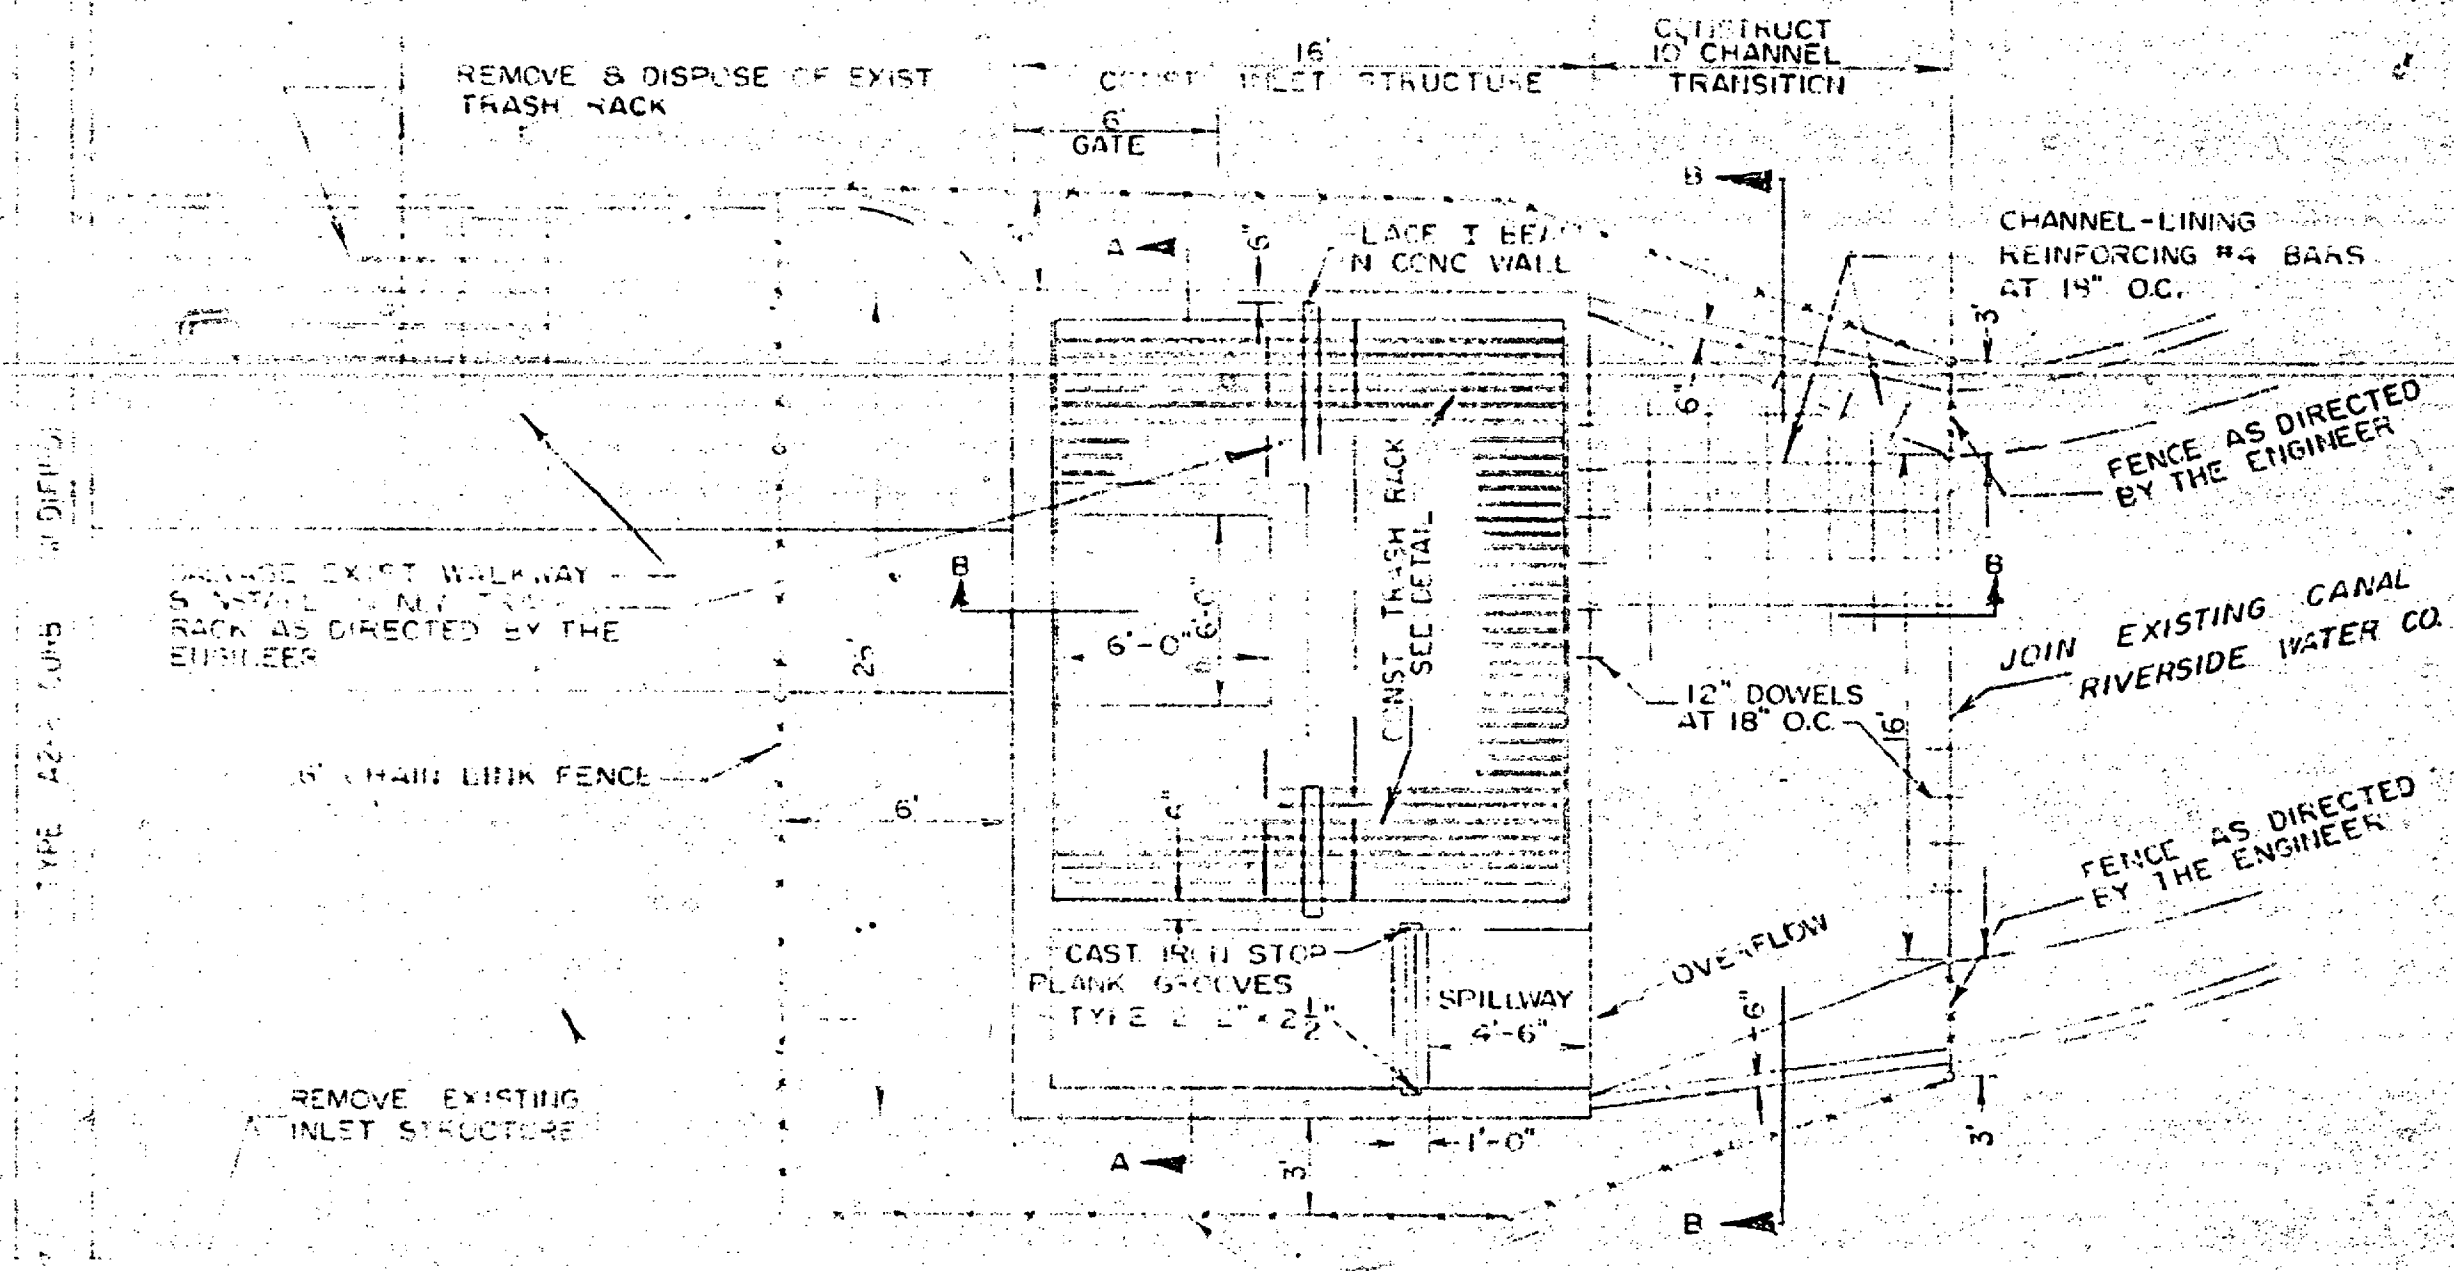 REMOVE & DISPOSE OF EXIST
TRASH RACK
16'
CONST INLET STRUCTURE
CONSTRUCT
10' CHANNEL
TRANSITION
6'
GATE
B
A
6"
PLACE I BEAM
IN CONC WALL
CHANNEL-LINING
REINFORCING #4 BARS
AT 18" O.C.
3'
6"
FENCE AS DIRECTED
BY THE ENGINEER
CONST TRASH RACK
SEE DETAIL
EXIST WALKWAY
RACK AS DIRECTED BY THE
ENGINEER
B
B
6'-0"
6'-0"
25'
JOIN EXISTING CANAL
RIVERSIDE WATER CO.
12" DOWELS
AT 18" O.C.
16'
6' CHAIN LINK FENCE
6'
TYPE A2-6 CURB
FENCE AS DIRECTED
BY THE ENGINEER
CAST IRON STOP
PLANK GROOVES
TYPE 2 2" x 2½"
SPILLWAY
4'-6"
OVERFLOW
6"
REMOVE EXISTING
INLET STRUCTURE
1'-0"
3'
3'
A
B